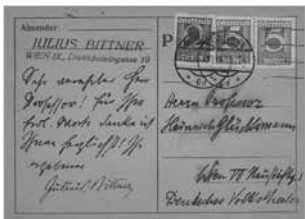 Absender:
JULIUS BITTNER
WIEN IX,
Sehr verehrter Herr
Professor! Für Ihre
frdl. Worte danke ich
Ihnen herzlichst! Ihr
ergebener
Julius Bittner
P
5 5
Herrn Professor
Heinrich Glücksmann
Wien VII
Deutsches Volkstheater